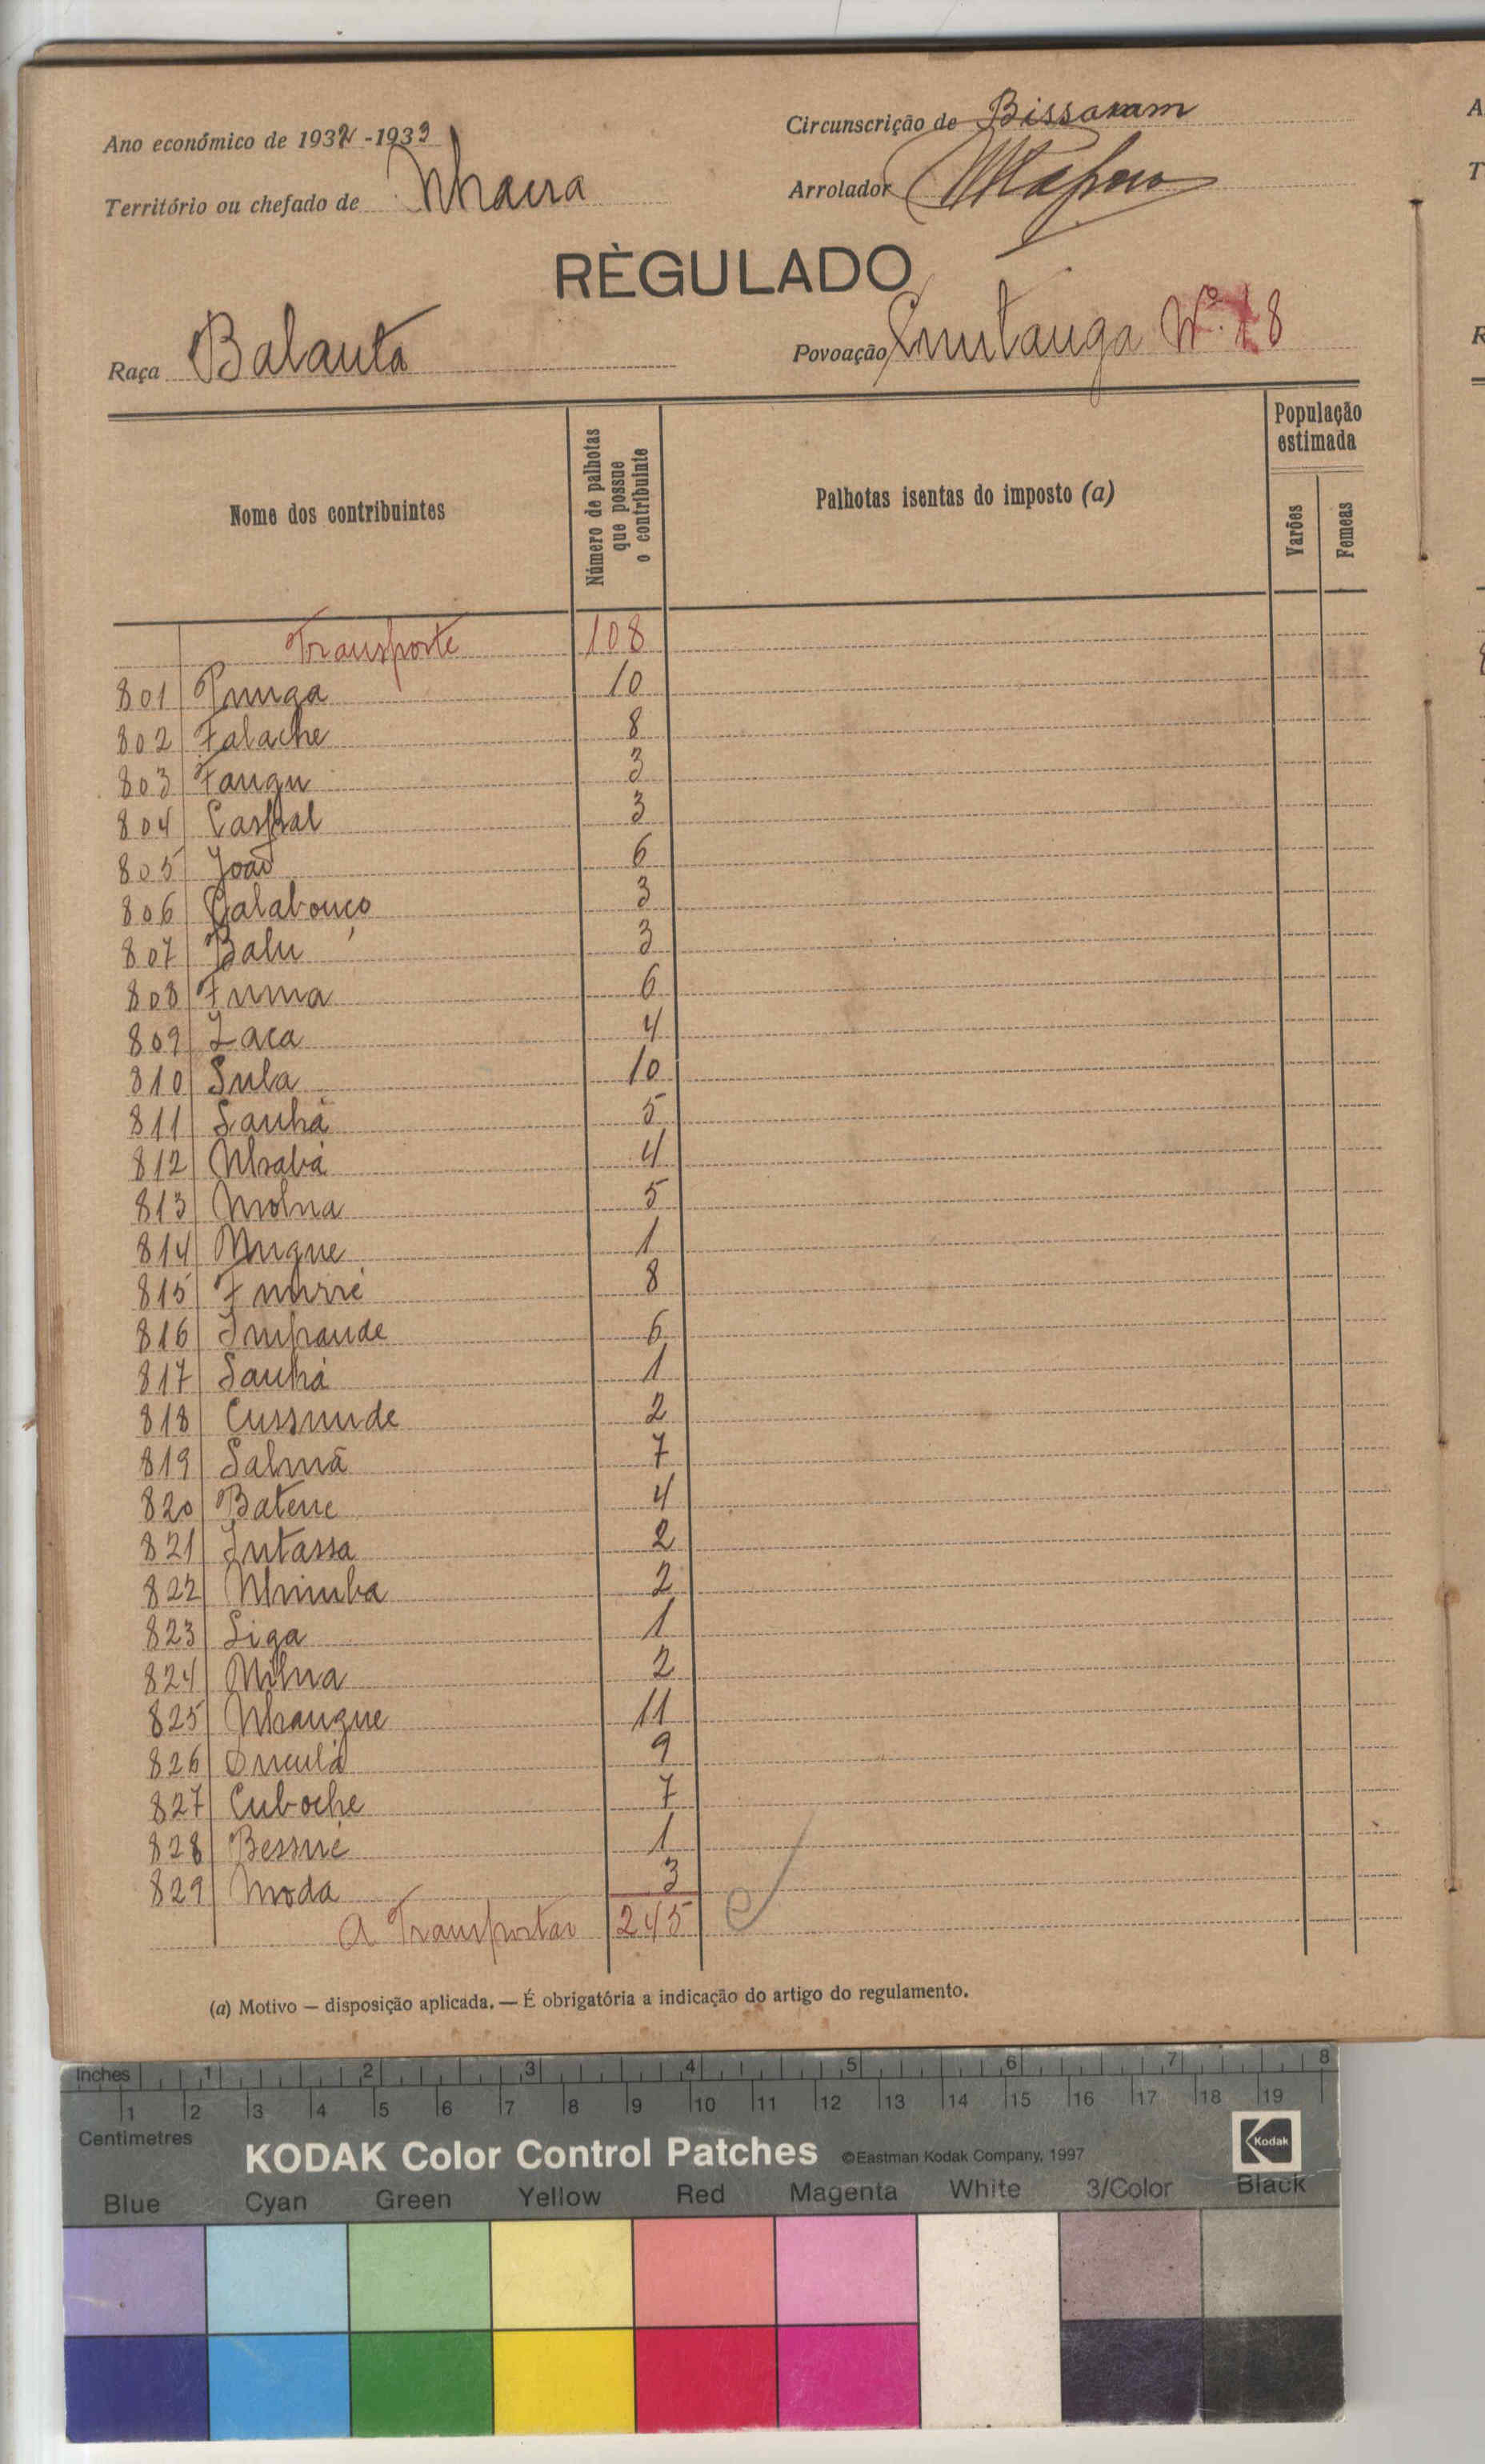 Ano económico de 1932-1933
Circunscrição de Bissoram
Território ou chefado de Nhaura
Arrolador
RÈGULADO
Raça Balanta
Povoação Enutanga Nº 18
Nome dos contribuintes
Número de palhotas que possue o contribuinte
Palhotas isentas do imposto (a)
População estimada
Varões
Femeas
Transporte 108
801 Tunga 10
802 Falache 8
803 Fangu 3
804 Caspal 3
805 João 6
806 Calabouço 3
807 Balu 3
808 Fuma 6
809 Zaca 4
810 Sula 10
811 Sanhá 5
812 Nhabá 4
813 Molna 5
814 Mugue 1
815 Fnurré 8
816 Infrande 6
817 Sanhá 1
818 Cussunde 2
819 Salmã 7
820 Batene 4
821 Intassa 2
822 Nhimba 2
823 Siga 1
824 Milna 2
825 Nhangue 11
826 Onculá 9
827 Cuboche 7
828 Bessné 1
829 Moda 3
A Transportar 245
(a) Motivo — disposição aplicada. — É obrigatória a indicação do artigo do regulamento.
Inches 1 2 3 4 5 6 7 8
1 2 3 4 5 6 7 8 9 10 11 12 13 14 15 16 17 18 19
Centimetres
KODAK Color Control Patches ©Eastman Kodak Company, 1997 Kodak
Blue Cyan Green Yellow Red Magenta White 3/Color Black